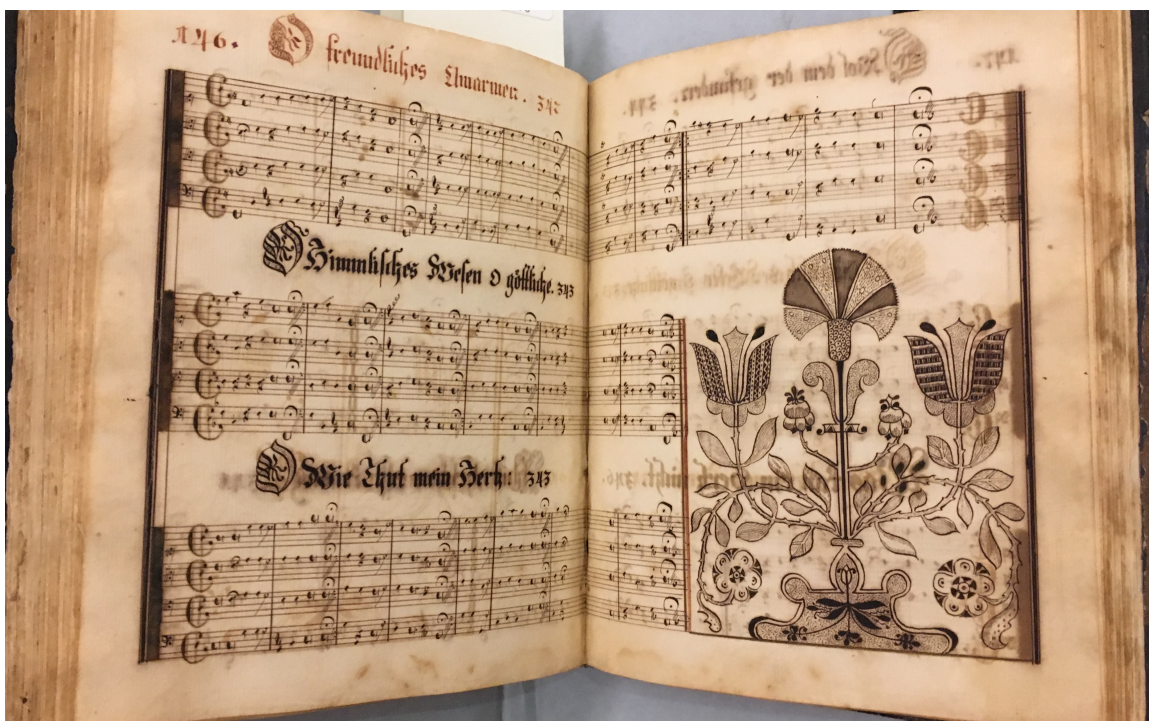 146.
O freundliches Umarmen. 342
O Himmlisches Wesen o göttliche. 343
O Wie Thut mein Hertz: 343